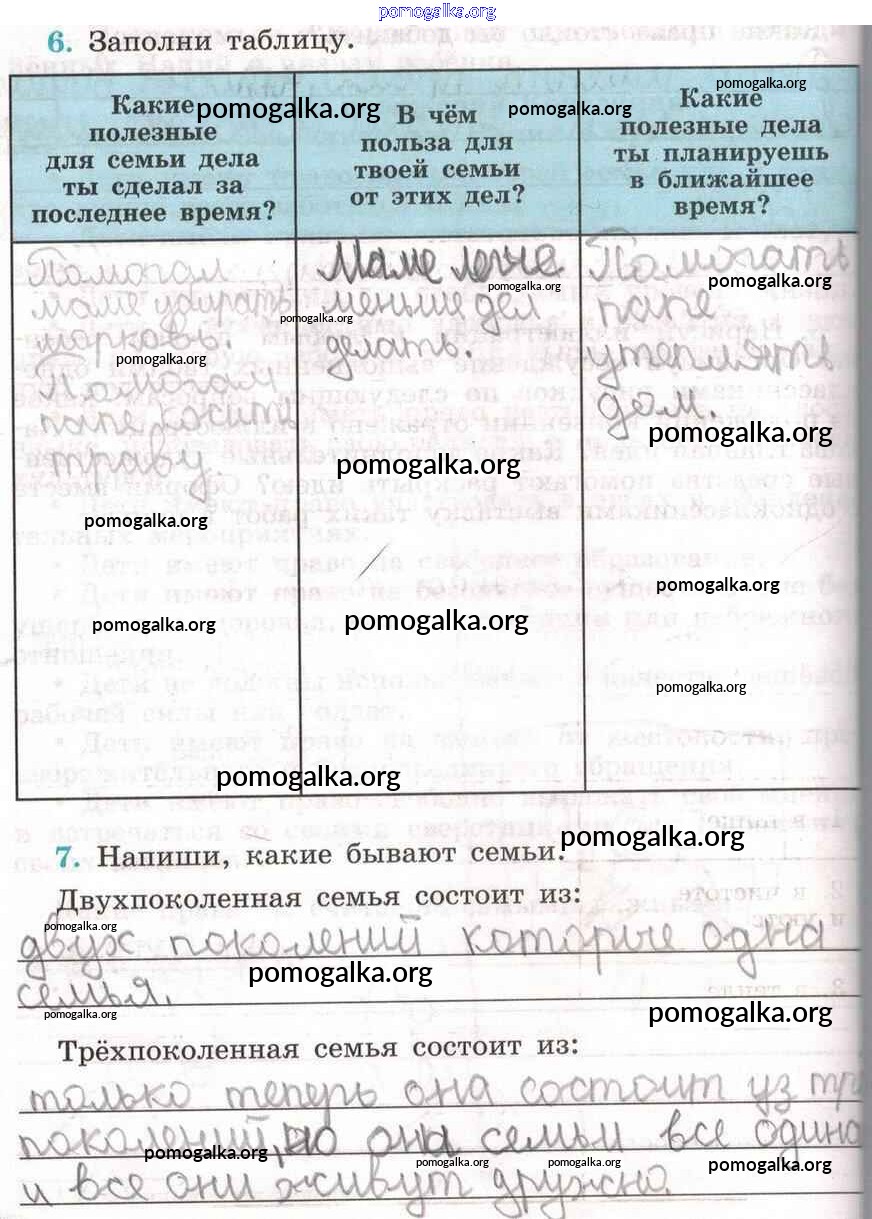 pomogalka.org
6. Заполни таблицу.
Какие
полезные
для семьи дела
ты сделал за
последнее время?
pomogalka.org
В чём
польза для
твоей семьи
от этих дел?
pomogalka.org
pomogalka.org
Какие
полезные дела
ты планируешь
в ближайшее
время?
Помогал
маме убирать
pomogalka.org
Помогал
папе косить
траву.
pomogalka.org
pomogalka.org
Маме
pomogalka.org
pomogalka.org
меньше дел
делать.
pomogalka.org
pomogalka.org
Помогать
pomogalka.org
папе
утеплять
дом.
pomogalka.org
pomogalka.org
pomogalka.org
pomogalka.org
7. Напиши, какие бывают семьи.
pomogalka.org
Двухпоколенная семья состоит из:
pomogalka.org
двух поколений которые одна
pomogalka.org
семья.
pomogalka.org
pomogalka.org
Трёхпоколенная семья состоит из:
только теперь она состоит из
поколений, но она семьи все
pomogalka.org
pomogalka.org
pomogalka.org
pomogalka.org
и все они живут дружно.